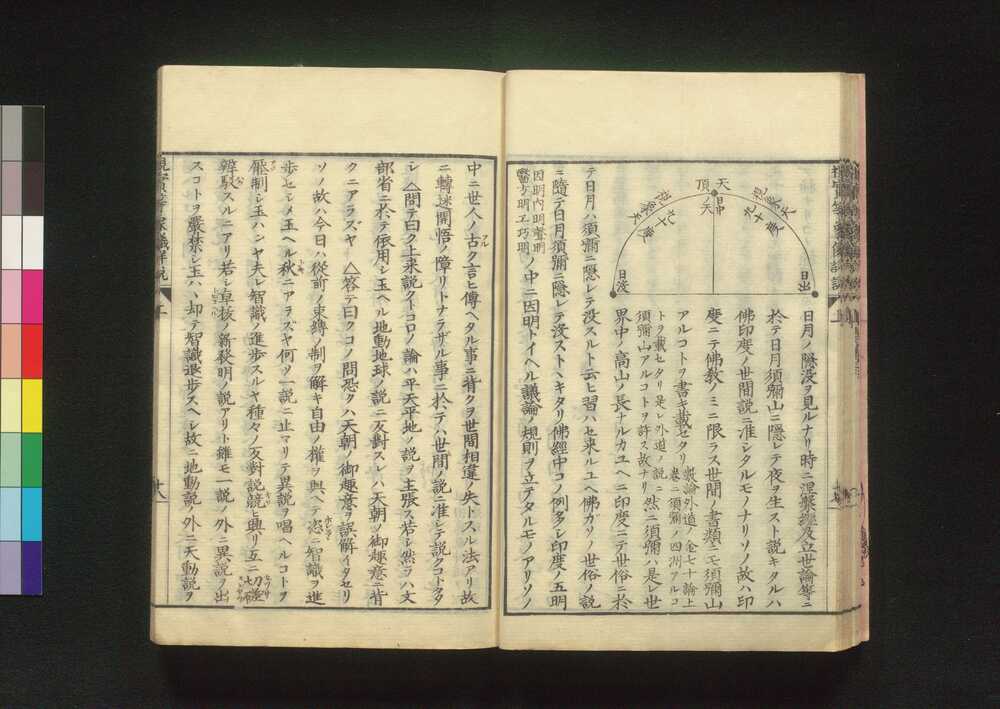 天頂
日中ノ天
視象天九十度
視象天九十度
日出
日没
日月ノ隠没ヲ見ルナリ時ニ涅槃經及立世論等ニ
於テ日月須彌山ニ隠レテ夜ヲ生スト説キタルハ
佛印度ノ世間説ニ准シタルモノナリソノ故ハ印
度ニテ佛教ノミニ限ラス世間ノ書類ニモ須彌山
アルコトヲ書キ載セタリ
數論外道ノ金七十論上
卷ニ須彌ノ四洲アルコ
トヲ載セタリ是レ外道ノ説ニ
須彌山アルコトヲ許ス故ナリ
然ニ須彌ハ是レ世
界中ノ高山ノ長ナルカユヘニ印度ニテ世俗ニ於
テ日月ハ須彌ニ隠レテ没スルト云ヒ習ハセ来ルユヘ佛カリノ世俗ノ説
ニ隨テ日月須彌ニ隠レテ没ストトキタリ佛經中コノ例多シ印度ノ五明
因明内明聲明
醫方明工巧明
ノ中ニ因明トイヘル議論ノ規則ヲ立テタルモノアリソノ
中ニ世人ノ古ク言ヒ傳ヘタル事ニ背クヲ世間相違ノ失トスル法アリ故
ニ轉迷開悟ノ障リトナラザル事ニ於テハ世間ノ説ニ准シテ説クコト多
シ△問テ曰ク上来説クトコロノ論ハ平天平地ノ説ヲ主張ス若シ然ラハ文
部省ニ於テ依用シ玉ヘル地動地球ノ説ニ反對スレハ天朝ノ御趣意ニ背
クニアラズヤ△答テ曰クコノ問恐クハ天朝ノ御趣意ヲ誤解イタセリ
ソノ故ハ今日ハ從前ノ束縛ノ制ヲ解キ自由ノ權ヲ與ヘテ恣ニ智識ヲ進
歩セシメ玉ヘル秋ニアラズヤ何ソ一説ニ止マリテ異説ヲ唱ヘルコトヲ
壓制シ玉ハンヤ夫レ智識ノ進歩スルヤ種々ノ反對説競ヒ興リ互ニ切瑳七磋
辨駁スルニアリ若シ卓拔ノ新發明ノ説アリト雖モ一説ノ外ニ異説ノ出
スコトヲ嚴禁シ玉ハヽ却テ智識退歩スヘシ故ニ地動説ノ外ニ天動説ヲ